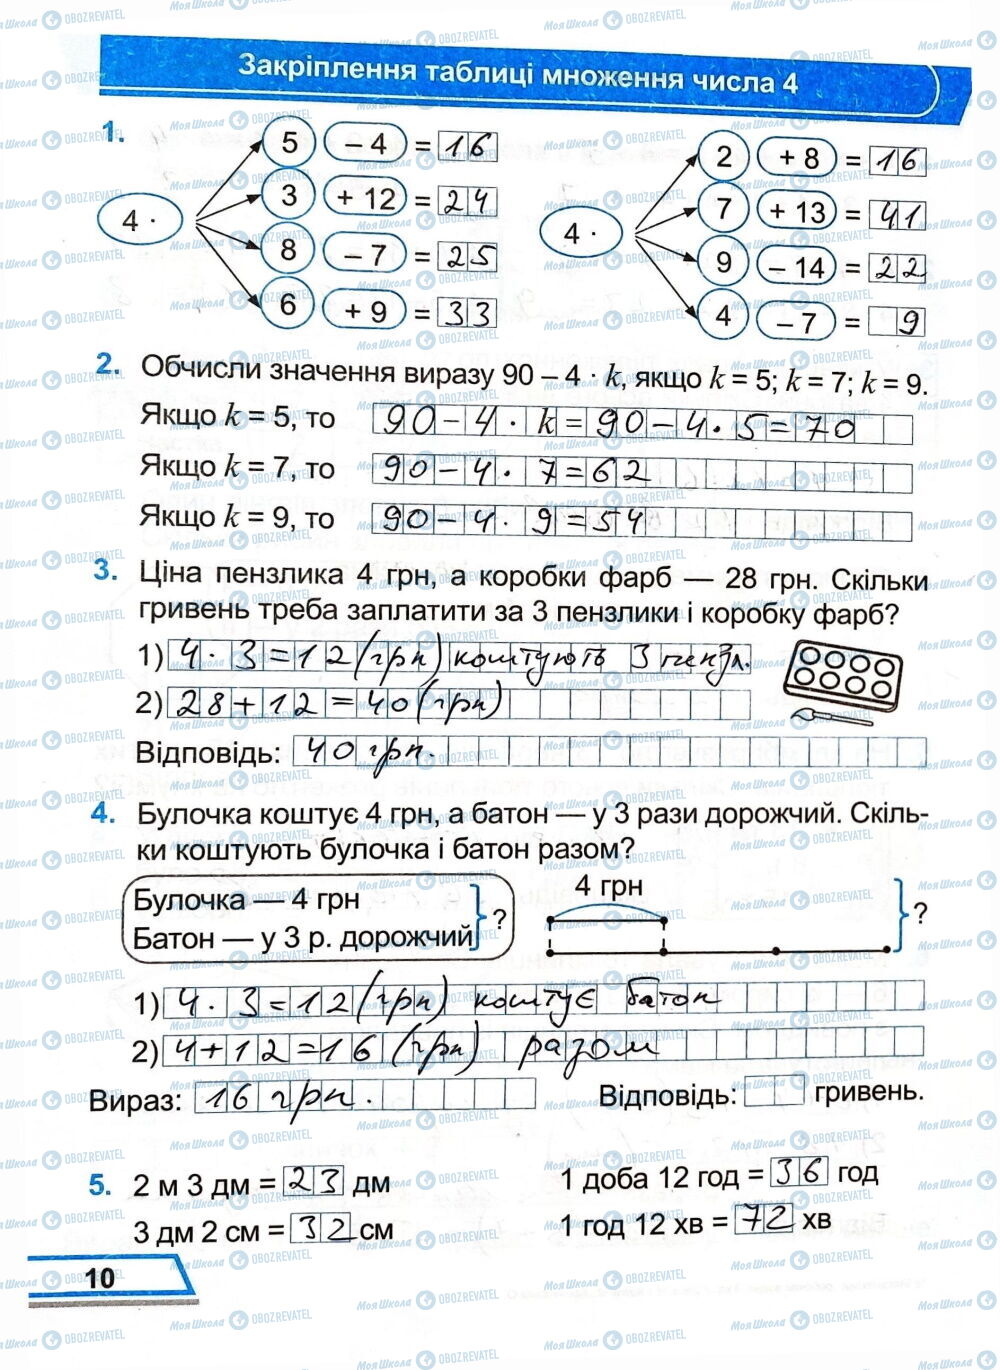 Закріплення таблиці множення числа 4
1.
4 ·
5 – 4 = 16
3 + 12 = 24
8 – 7 = 25
6 + 9 = 33
4 ·
2 + 8 = 16
7 + 13 = 41
9 – 14 = 22
4 – 7 = 9
2. Обчисли значення виразу 90 – 4 · k, якщо k = 5; k = 7; k = 9.
Якщо k = 5, то 90 – 4 · k = 90 – 4 · 5 = 70
Якщо k = 7, то 90 – 4 · 7 = 62
Якщо k = 9, то 90 – 4 · 9 = 54
3. Ціна пензлика 4 грн, а коробки фарб — 28 грн. Скільки
гривень треба заплатити за 3 пензлики і коробку фарб?
1) 4 · 3 = 12 (грн) коштують 3 пензл.
2) 28 + 12 = 40 (грн)
Відповідь: 40 грн.
4. Булочка коштує 4 грн, а батон — у 3 рази дорожчий. Скіль-
ки коштують булочка і батон разом?
Булочка — 4 грн
Батон — у 3 р. дорожчий
?
4 грн
?
1) 4 · 3 = 12 (грн) коштує батон
2) 4 + 12 = 16 (грн) разом
Вираз: 16 грн. Відповідь: гривень.
5. 2 м 3 дм = 23 дм 1 доба 12 год = 36 год
3 дм 2 см = 32 см 1 год 12 хв = 72 хв
10
МояШкола OBOZREVATEL